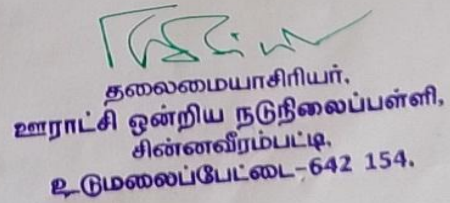 தலைமையாசிரியர்.
ஊராட்சி ஒன்றிய நடுநிலைப்பள்ளி,
சின்னவீரம்பட்டி,
உடுமலைப்பேட்டை-642 154.